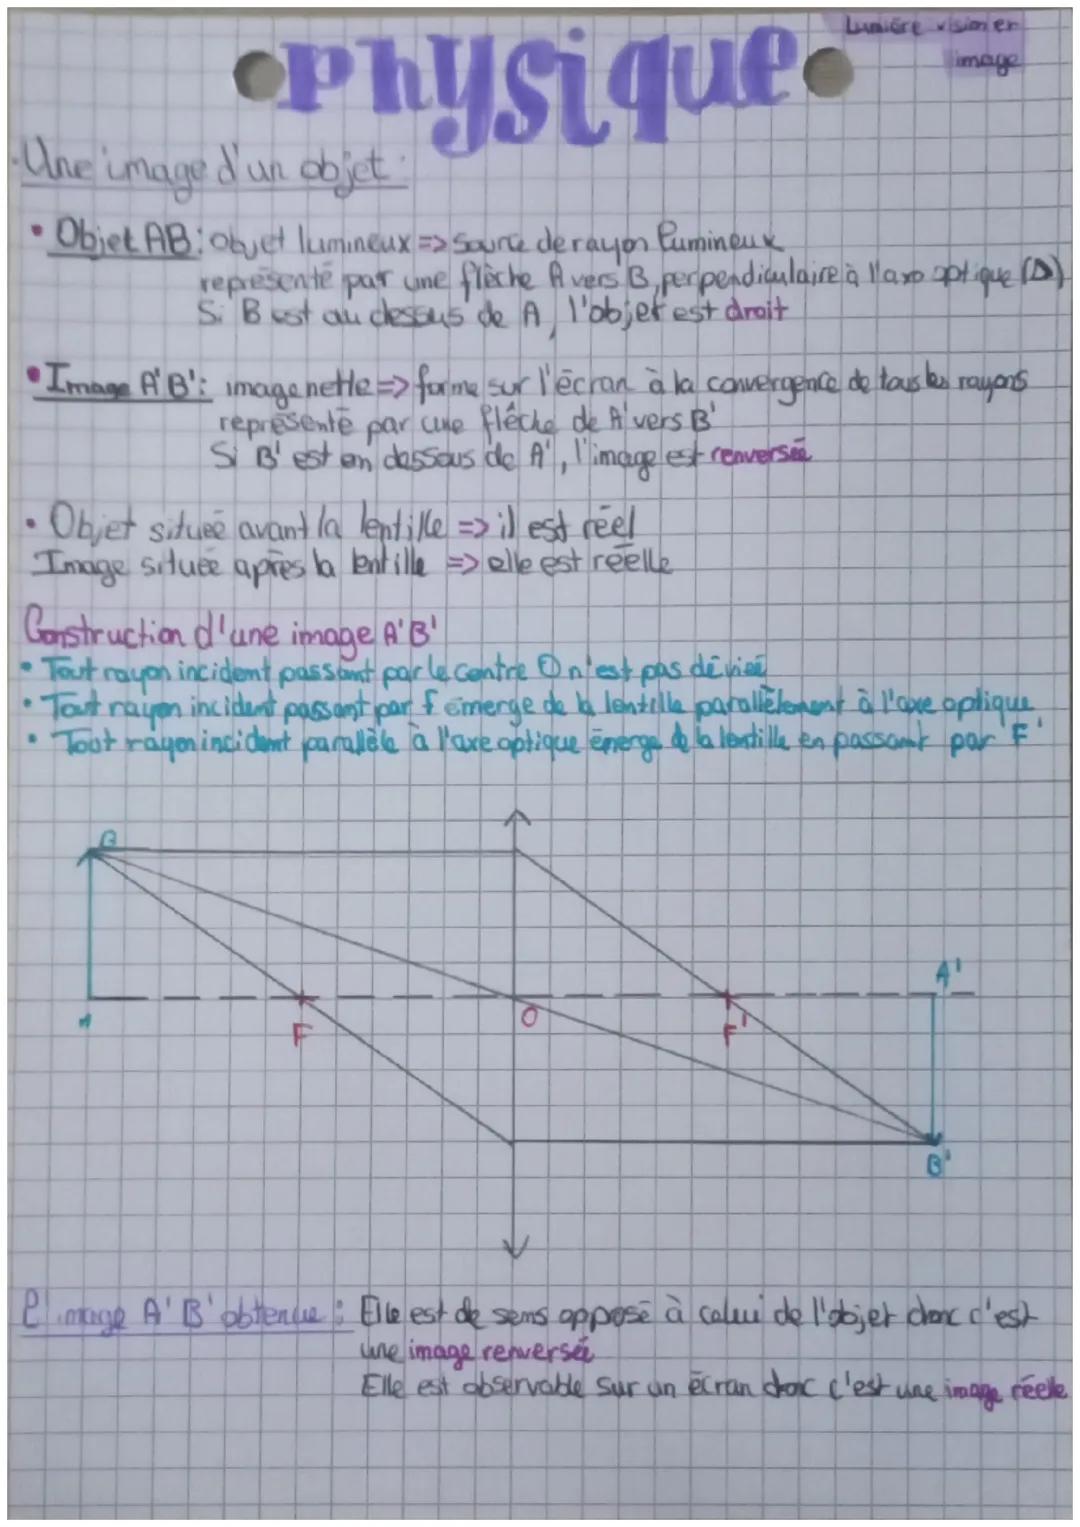 Lumière vision er
image
• Physique •
Une image d'un objet :
• Objet AB : objet lumineux => source de rayon lumineux
représenté par une flèche A vers B, perpendiculaire à l'axe optique (Δ)
Si B est au dessus de A, l'objet est droit
• Image A'B' : image nette => forme sur l'écran à la convergence de tous les rayons
représenté par une flêche de A' vers B'
Si B' est en dessous de A', l'image est renversée
• Objet situéé avant la lentille => il est réel
Image située après la lentille => elle est réelle
Construction d'une image A'B'
• Tout rayon incident passant par le centre O n'est pas dévieé
• Tout rayon incident passant par f émerge de la lentille parallèlement à l'axe optique
• Tout rayon incident parallèle à l'axe optique émerge de la lentille en passant par F'
B
A'
A
F
O
F'
B'
L'image A'B' obtenue : Elle est de sens opposé à celui de l'objet donc c'est
une image renversée
Elle est observable sur un écran donc c'est une image réelle